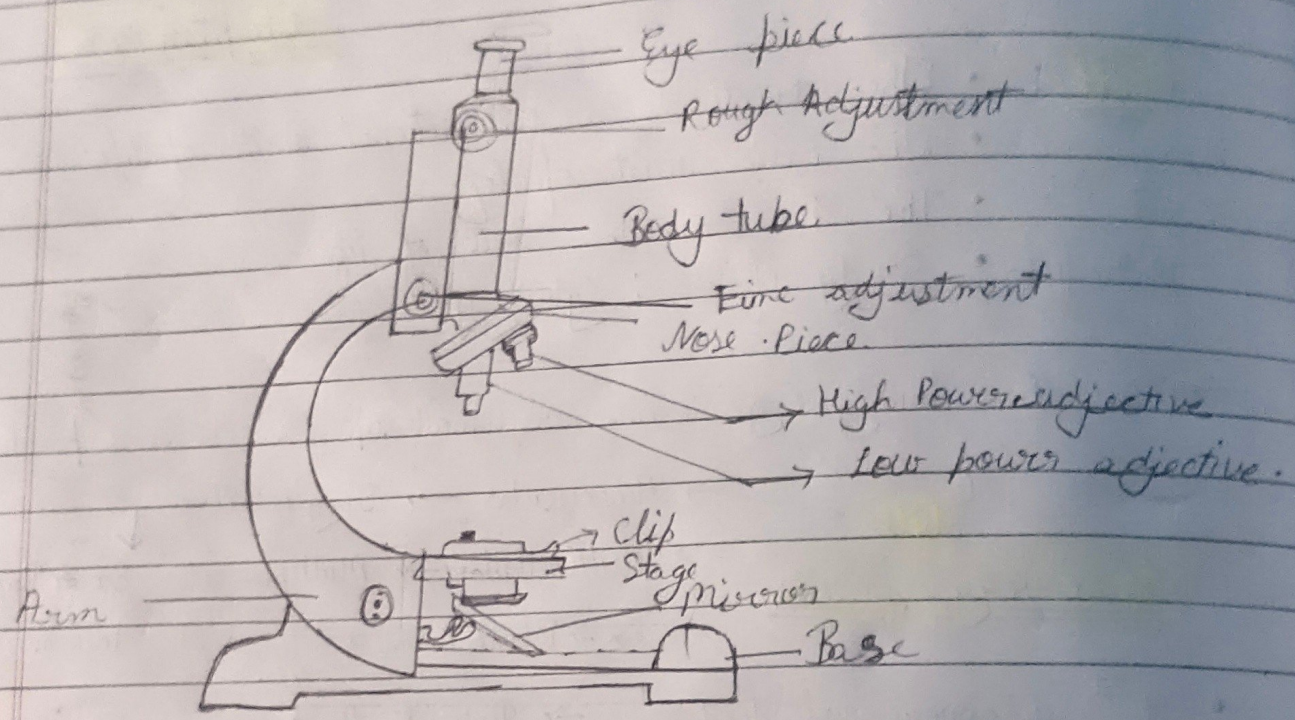 Eye piece
Rough Adjustment
Body tube
Fine adjustment
Nose Piece
High Power adjective
Low power adjective.
Clip
Stage
Mirror
Arm
Base